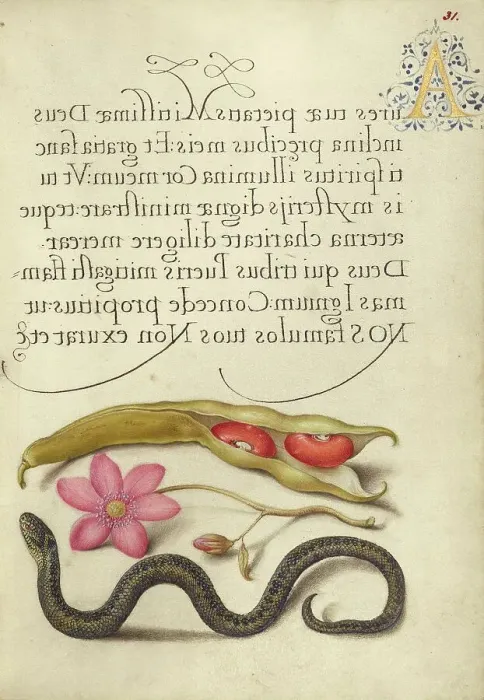 31.
Aures tuæ pietatis Mitissimæ Deus
inclina precibus meis: Et gratia sanc
ti spiritus illumina Cor meum: Vt tu
is mysterijs dignæ ministrare: teque
æterna charitate diligere merear.
Deus qui tribus Pueris mitigasti flam=
mas Ignium: Concede propitius: ut
NOS famulos tuos Non Non exurat etc